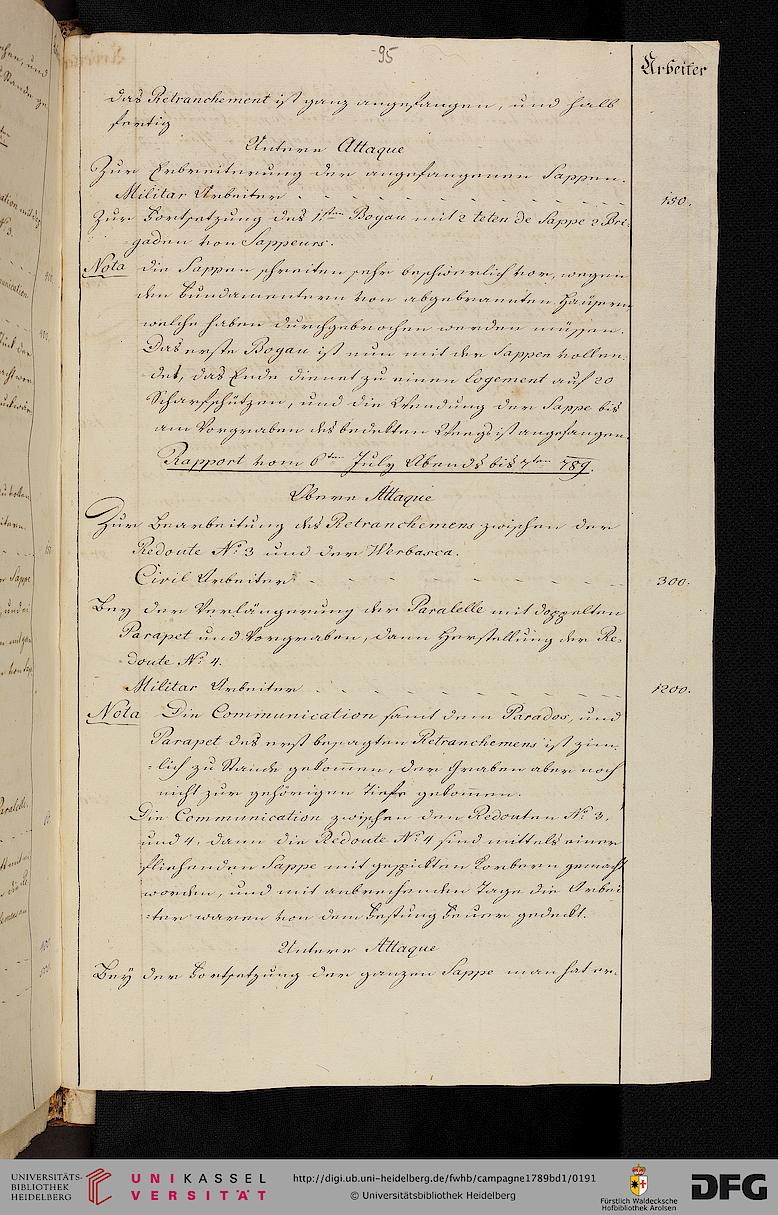 95
Arbeiter
das Retranchement ist ganz angefangen, und halb
fertig
Untere Attaque
Zur Erbreiterung der angefangenen Sappen.
Militar Arbeiter - - - - - - - 150.
Zur Fortsetzung des 1sten Boyau mit 2 teten de Sappe 2 Bri-
gaden von Sappeurs.
Nota die Sappen schreiten sehr beschwerlich vor, wegen
den Fundamentern von abgebrannten Häusern,
welche haben durchgebrochen werden müssen.
Das erste Boyau ist nun mit der Sappen vollen-
det, das Ende dienet zu einen logement auf 20
Scharfschützen, und die Wendung der Sappe bis
am Vorgraben des bedekten Weegs ist angefangen.
Rapport vom 6ten July Abends bis 7ten 789.
Obere Attaque
Zur Bearbeitung des Retranchemens zwischen der
Redoute No: 3 und der Werbasca.
Civil Arbeiter - - - - - - - 300.
Bey der Verlängerung der Paralelle mit doppelten
Parapet und Vorgraben, dann Herstellung der Re-
doute No: 4.
Militar Arbeiter - - - - - - - 1200.
Nota Die Communication samt dem Parados, und
Parapet des erst besagten Retranchemens ist ziem-
lich zu Stande gekommen, der Graben aber noch
nicht zur gehörigen Tiefe gekommen.
Die Communication zwischen den Redouten No: 3.
und 4, dann die Redoute No: 4 sind mittels einer
fliehenden Sappe mit gespickten Körbern gemacht
worden, und mit anbrechenden Tage die Arbei-
ter waren von dem Festung Feuer gedeckt.
Untere Attaque
Bey der Fortsetzung der ganzen Sappe man hat er-
UNIVERSITÄTS-
BIBLIOTHEK
HEIDELBERG
UNIKASSEL
VERSITÄT
http://digi.ub.uni-heidelberg.de/fwhb/campagne1789bd1/0191
© Universitätsbibliothek Heidelberg
Fürstlich Waldecksche
Hofbibliothek Arolsen
DFG